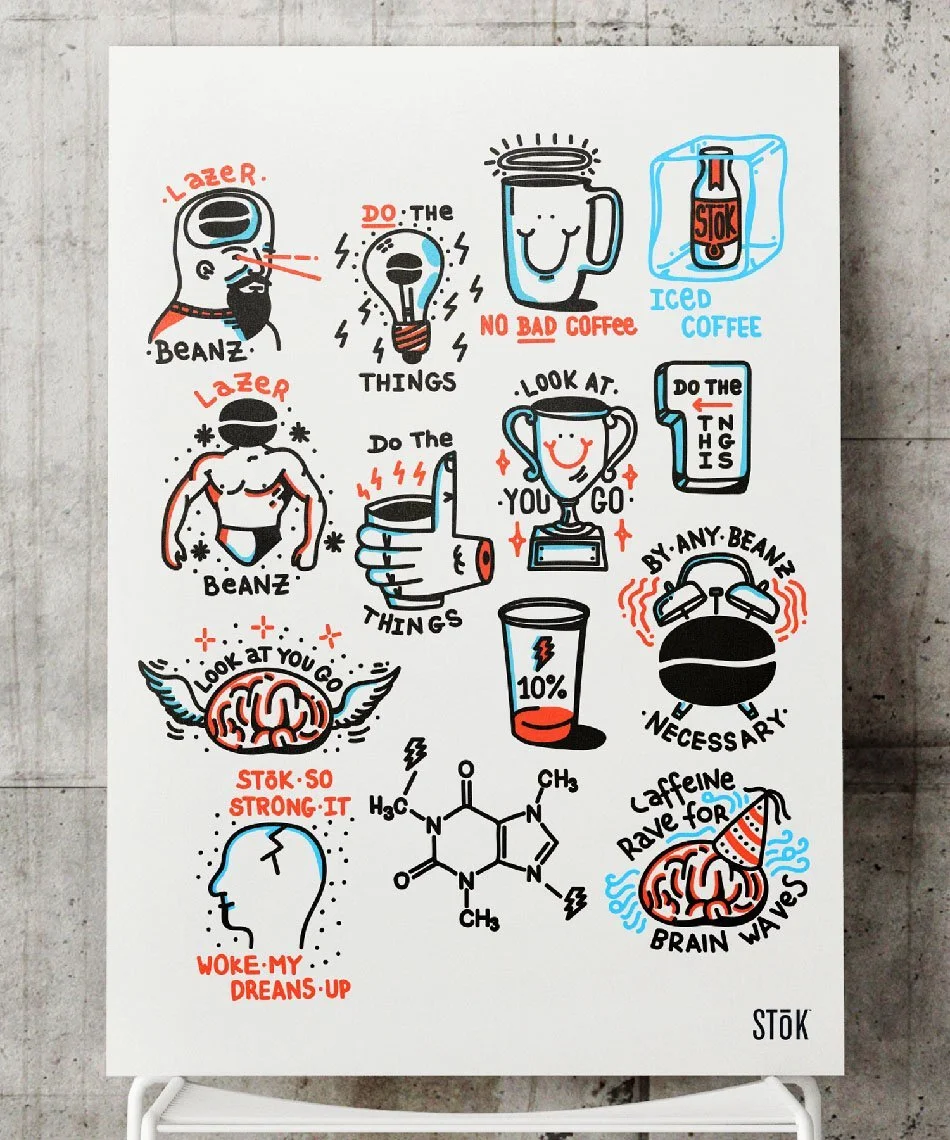 ·LazeR·
·BeANZ·
DO·THe
THINGS
NO BAD COFFee
STōK
ICeD
COFFEE
LazeR
BeANZ
Do The
THINGS
·LOOK AT·
·YOU GO·
DO THe
T N
H G
I S
BY·ANY·BEANZ
·NECESSARY·
LOOK aT YOU GO
10%
STōK·SO
STRONG·IT
WOKE·MY
DREANS·UP
O
CH₃
H₃C
N
N
O
N
N
CH₃
Caffeine
Rave for
BRAIN WAVeS
STōK